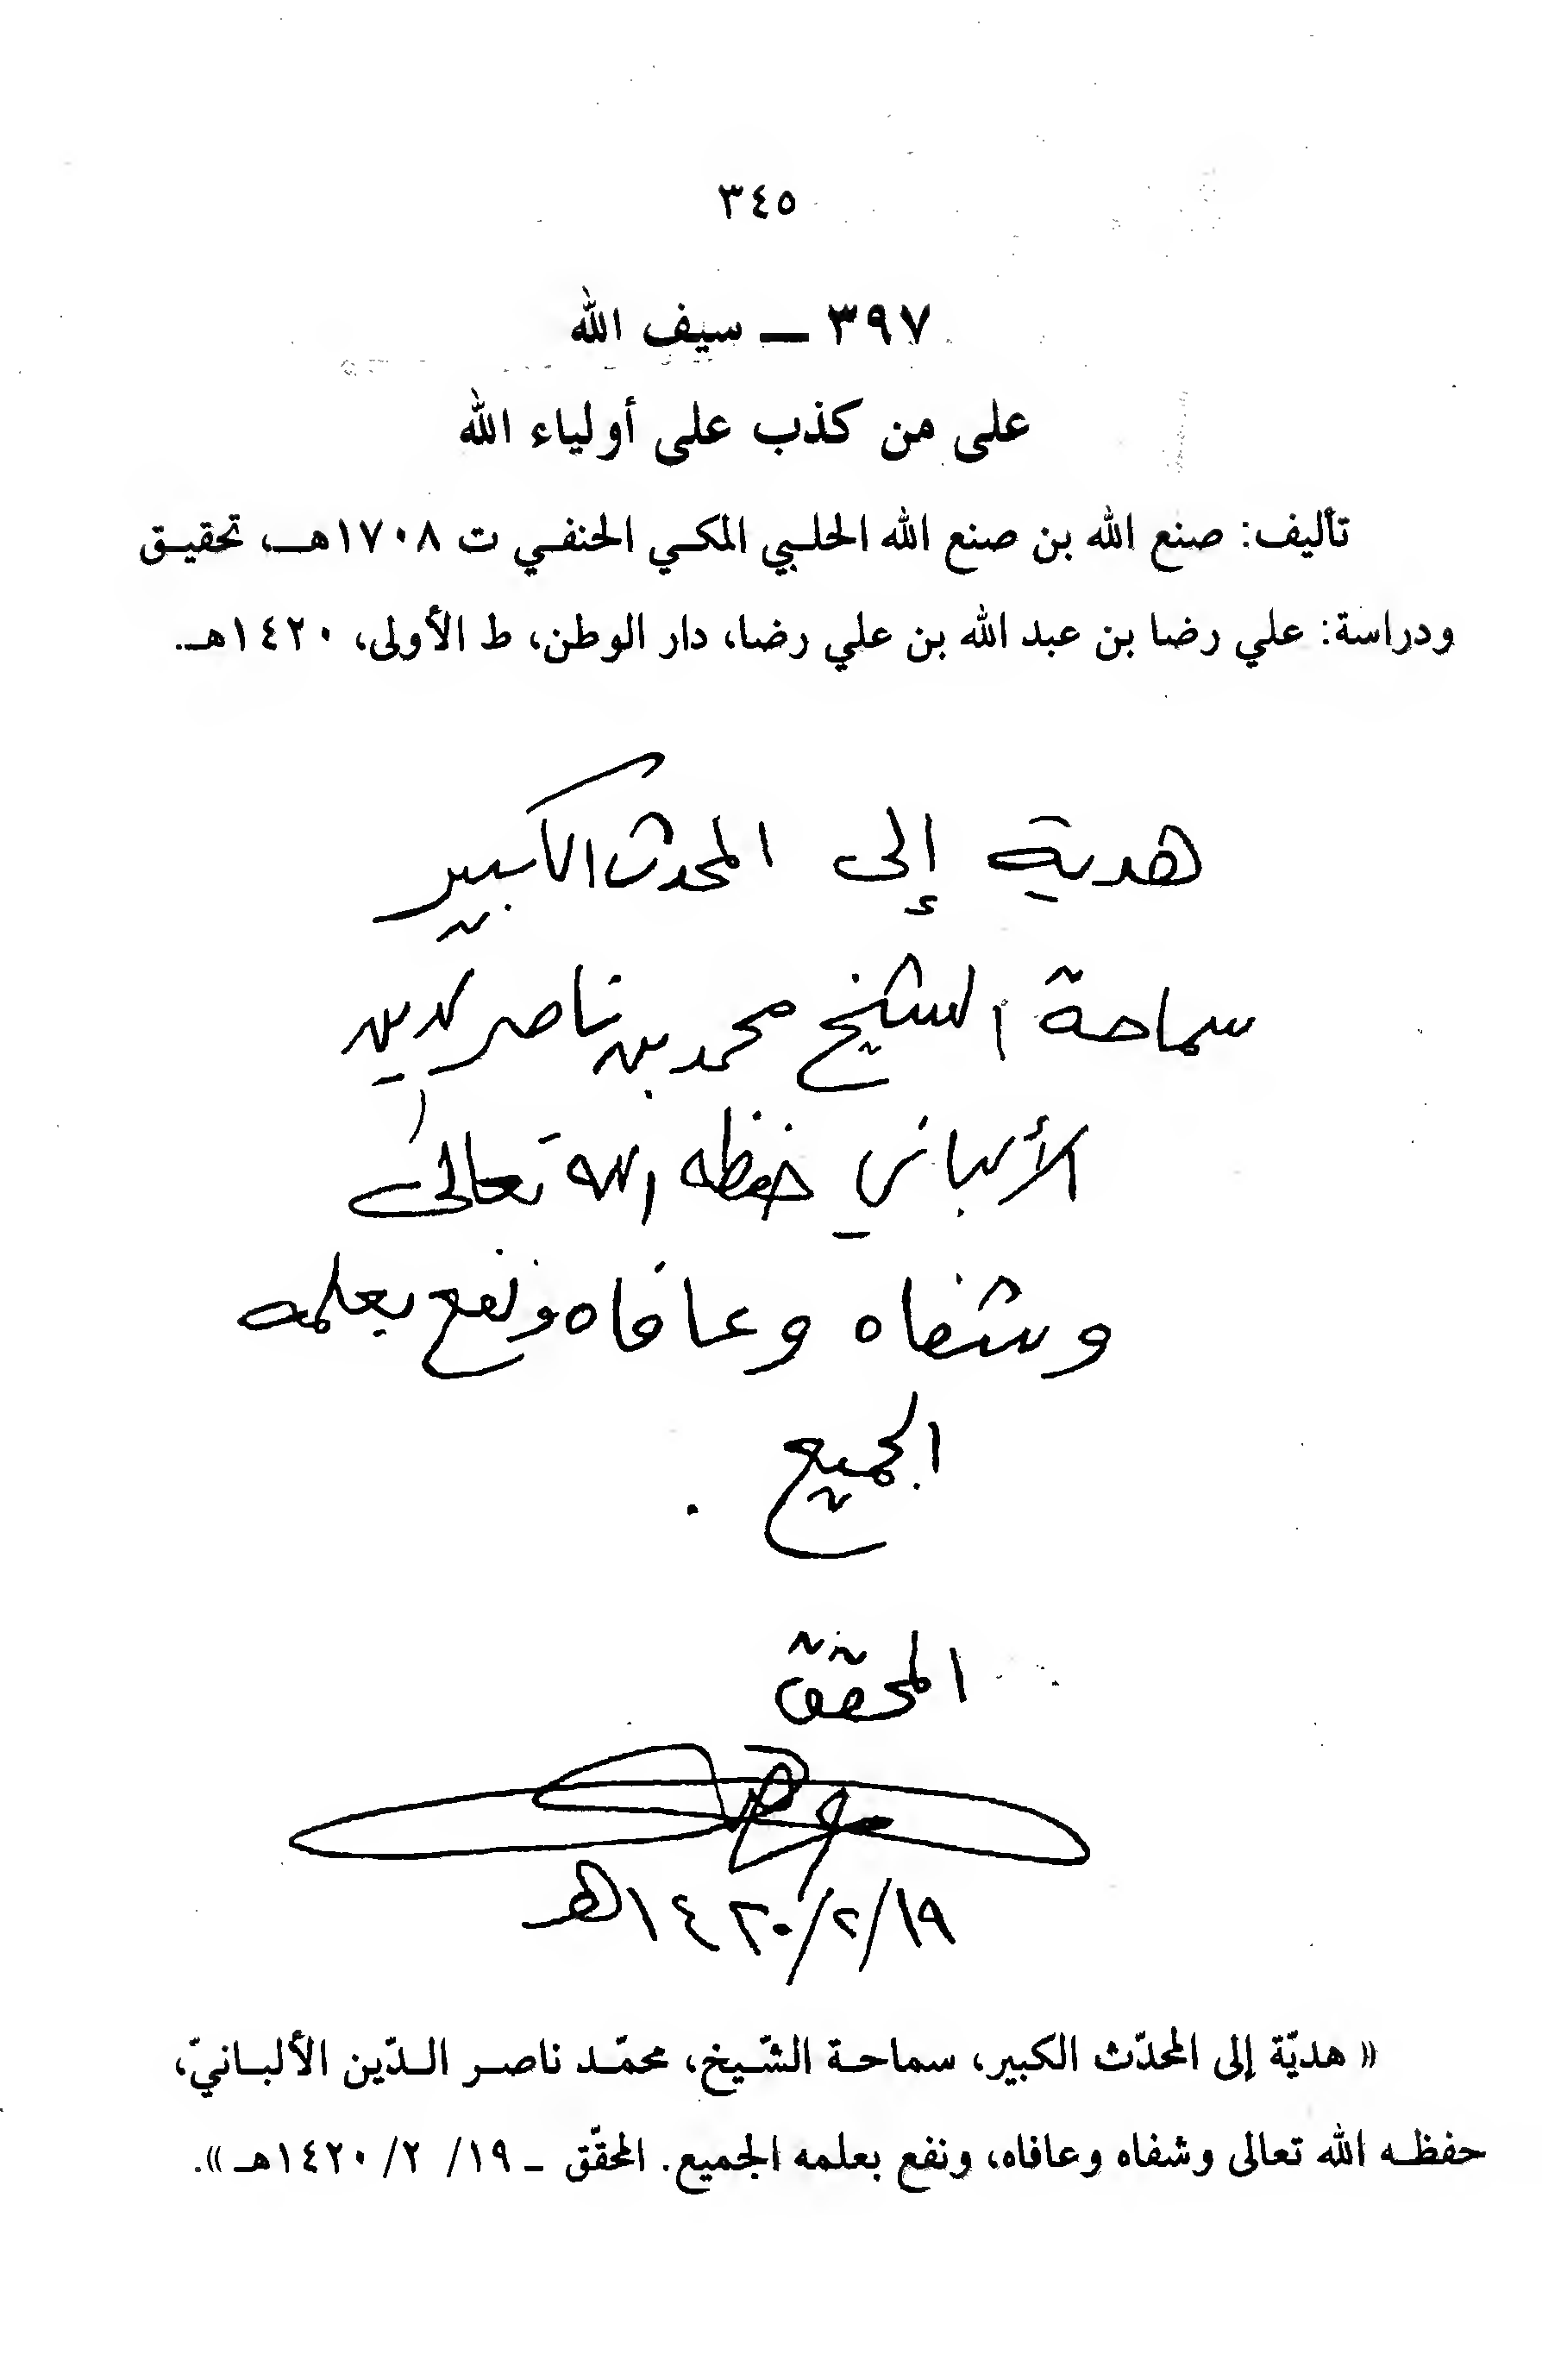 ٣٤٥
٣٩٧ ــ سيف الله
على من كذب على أولياء الله
تأليف: صنع الله بن صنع الله الحلبي المكي الحنفي ت ١٧٠٨هـ، تحقيق
ودراسة: علي رضا بن عبد الله بن علي رضا، دار الوطن، ط الأولى، ١٤٢٠هـ.
هدية إلى المحدث الكبير
سماحة الشيخ محمد بن ناصر الدين
الألباني حفظه الله تعالى
وشفاه وعافاه ونفع بعلمه
الجميع .
المحقق
١٩/٢/١٤٢٠هـ
« هديّة إلى المحدّث الكبير، سماحة الشّيخ، محمّد ناصر الدّين الألبانيّ،
حفظه الله تعالى وشفاه وعافاه، ونفع بعلمه الجميع. المحقّق - ١٩/ ٢/ ١٤٢٠هـ ».